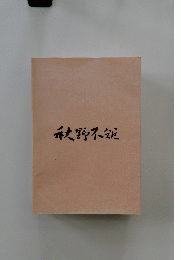 秋野不矩